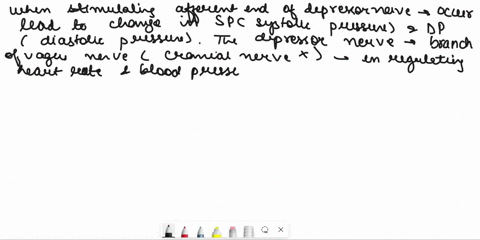 when stimulating afferent end of depressor nerve → occur
lead to change in SPC systolic pressure) & DP
( diastolic pressure). The depressor nerve → branch
of vagus nerve ( cranial nerve X ) → in regulating
heart rate & blood presse